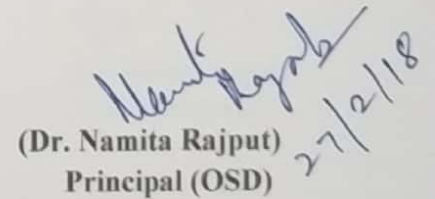 Namita
Rajput
27/2/18
(Dr. Namita Rajput)
Principal (OSD)